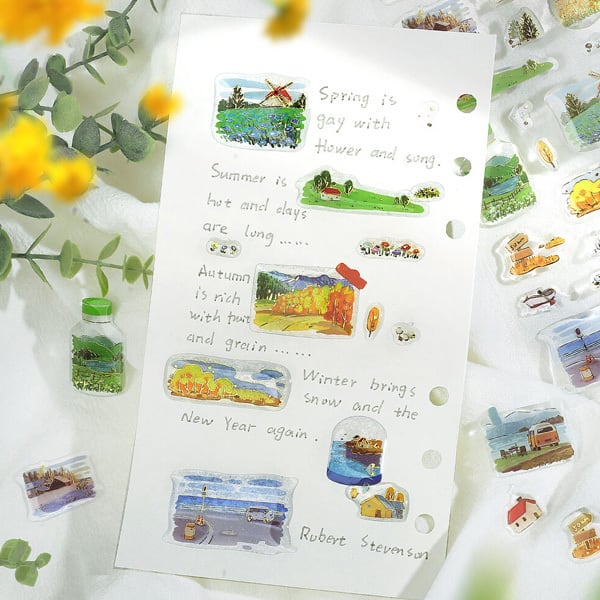 Spring is
gay with
flower and song.
Summer is
hot and days
are long ......
Autumn
is rich
with fruit
and grain ......
Winter brings
snow and the
New Year again.
Robert Stevenson